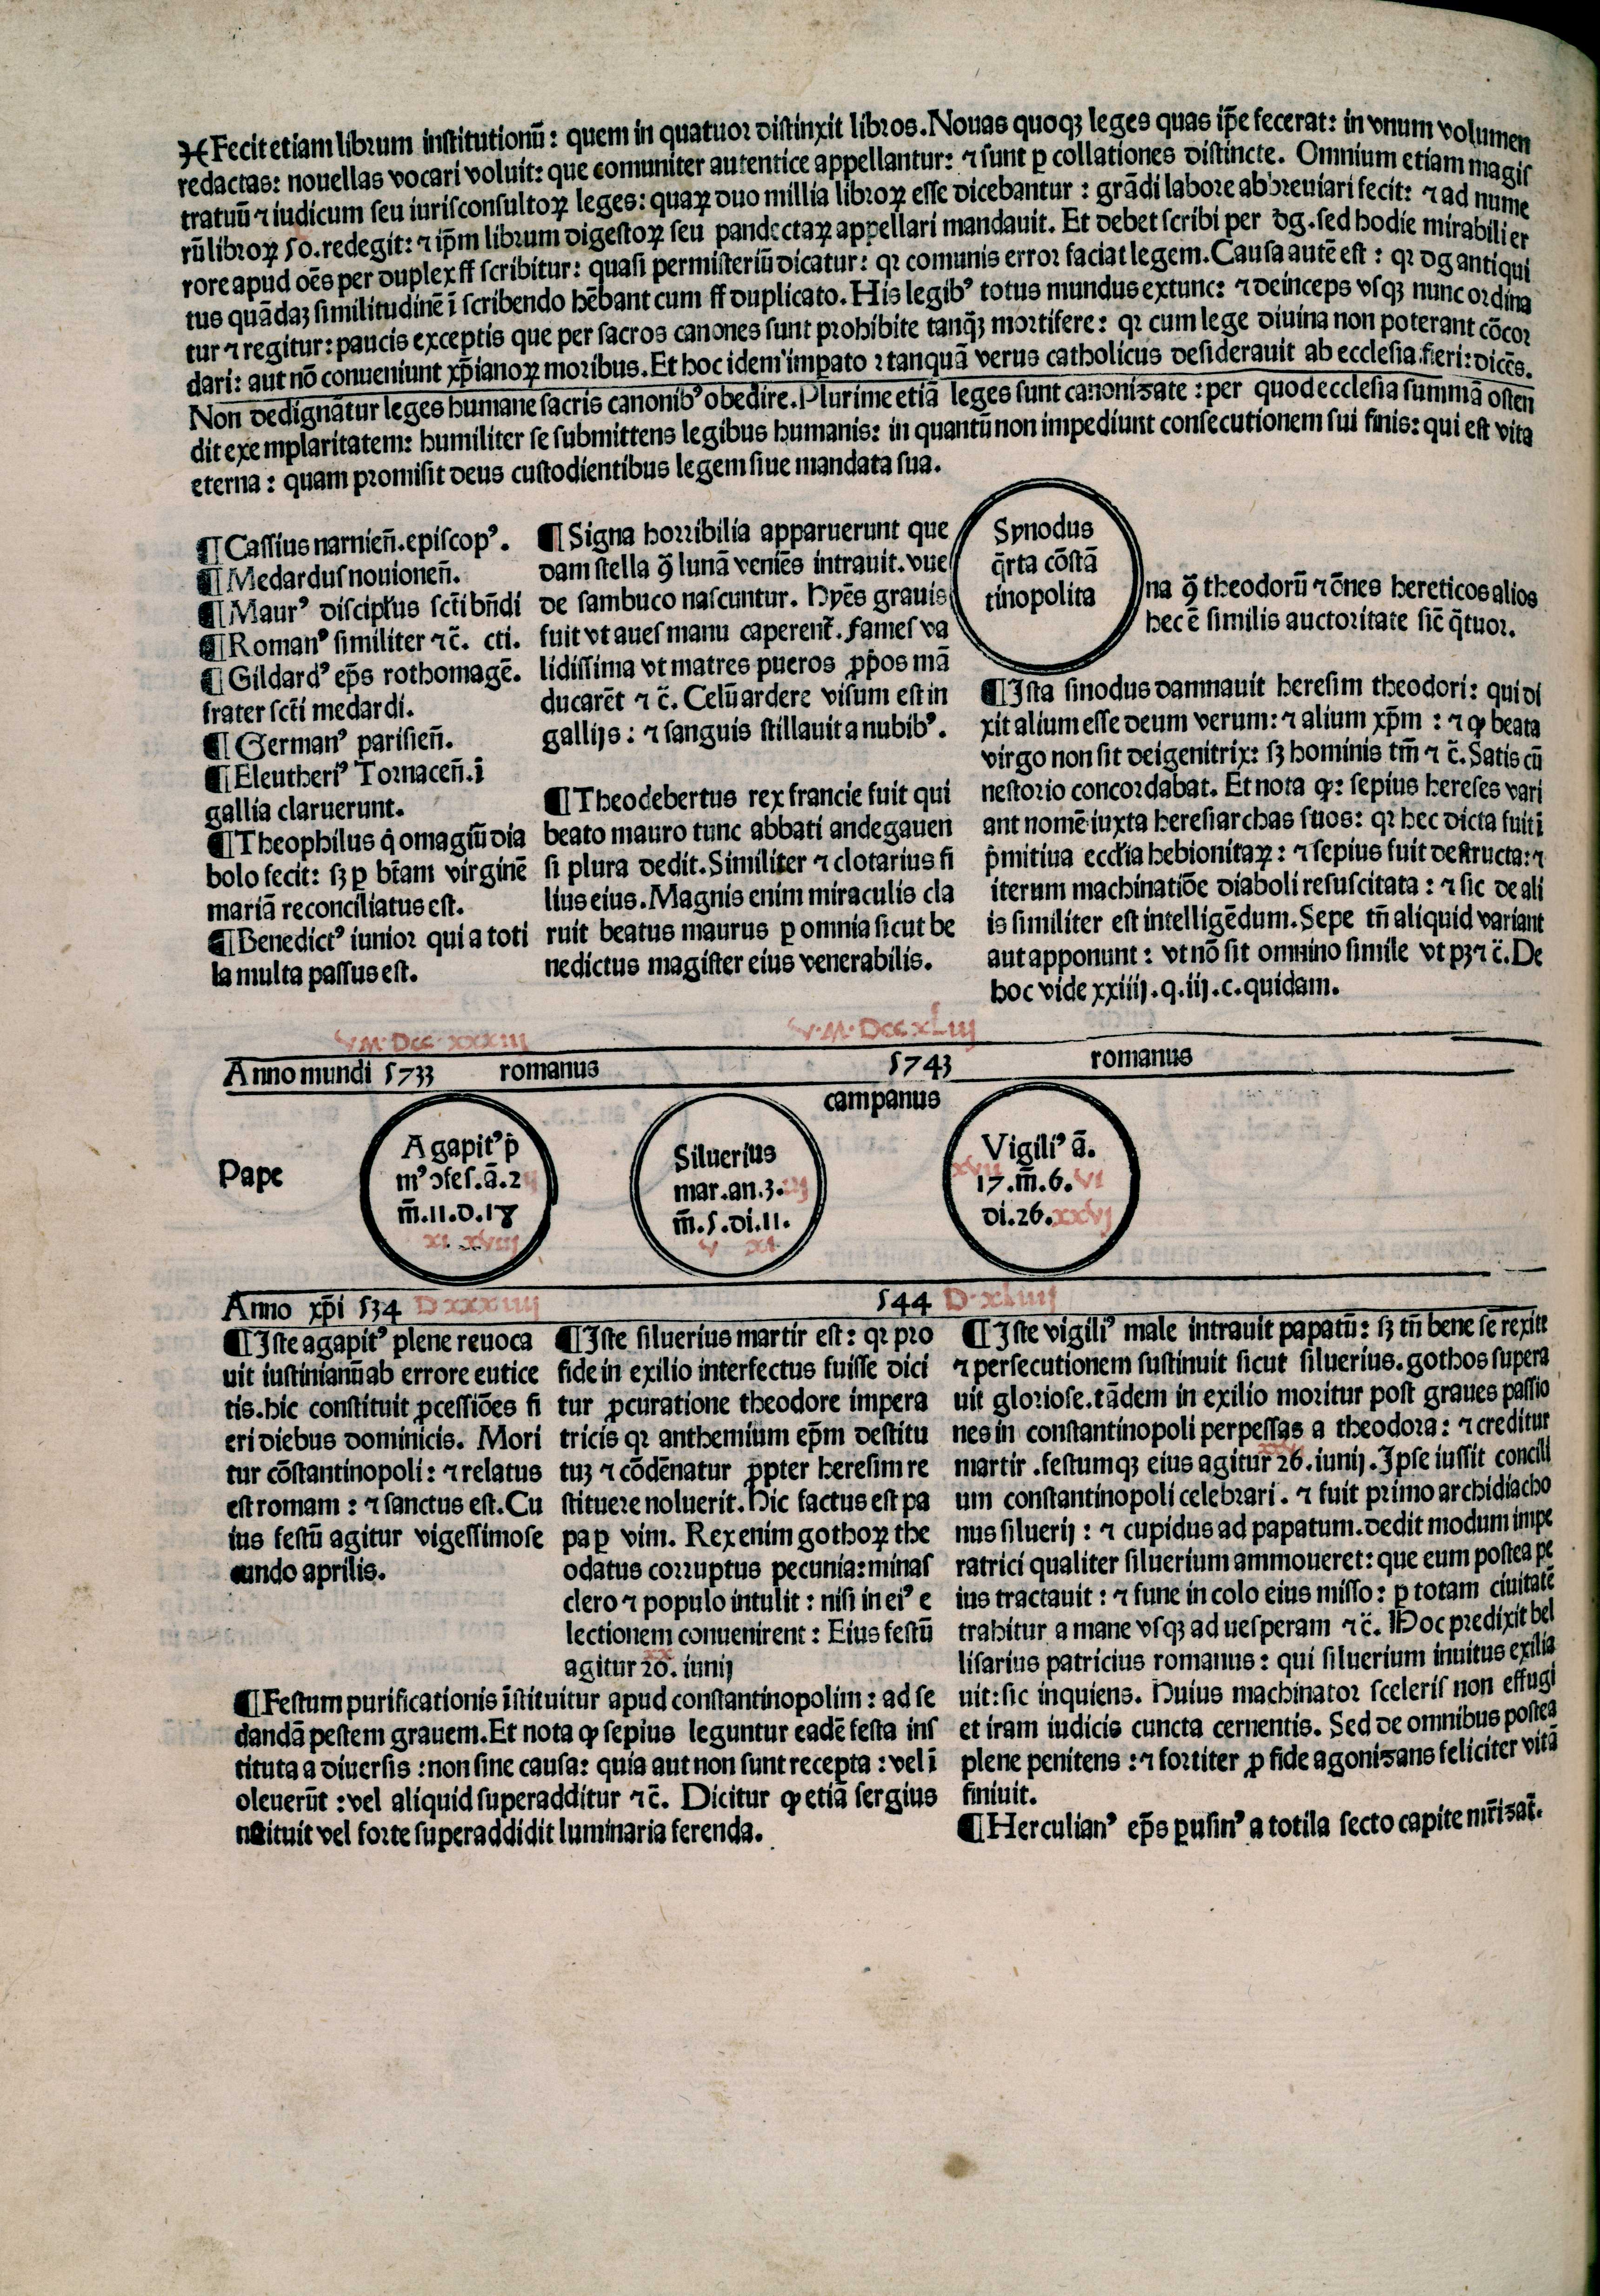 Fecit etiam librum institutionū: quem in quatuor distinxit libros. Nouas quoqꝫ leges quas ip̄e fecerat: in vnum volumen
redactas: nouellas vocari voluit: que comuniter autentice appellantur: ⁊ sunt ꝑ collationes distincte. Omnium etiam magis
tratuū ⁊ iudicum seu iurisconsultoꝝ leges: quaꝝ duo millia libroꝝ esse dicebantur: grādi labore abbreuiari fecit: ⁊ ad nume
rū libroꝝ 50. redegit: ⁊ ip̄m librum digestoꝝ seu pandectaꝝ appellari mandauit. Et debet scribi per dg. sed hodie mirabili er
rore apud oēs per duplex ff scribitur: quasi per misteriū dicatur: qꝛ comunis error faciat legem. Causa autē est: qꝛ dg antiqui
tus quādaꝫ similitudinē ī scribendo hēbant cum ff duplicato. His legibꝰ totus mundus extunc: ⁊ deinceps vsqꝫ nunc ordina
tur ⁊ regitur: paucis exceptis que per sacros canones sunt prohibite tanq̄ꝫ mortifere: qꝛ cum lege diuina non poterant cōcor
dari: aut nō conueniunt xp̄ianoꝝ moribus. Et hoc idem impato ꝛ tanquā verus catholicus desiderauit ab ecclesia fieri: dicēs.
Non dedignātur leges humane sacris canonibꝰ obedire. Plurime etiā leges sunt canonizate: per quod ecclesia summā osten
dit exemplaritatem: humiliter se submittens legibus humanis: in quantū non impediunt consecutionem sui finis: qui est vita
eterna: quam promisit deus custodientibus legem siue mandata sua.
¶ Cassius narnien̄. episcopꝰ.
¶ Medardus nouionen̄.
¶ Maurꝰ discipl̄us sct̄i bn̄di
¶ Romanꝰ similiter ⁊ c̄. cti.
¶ Gildardꝰ ep̄s rothomagē.
frater sct̄i medardi.
¶ Germanꝰ parisien̄.
¶ Eleutheriꝰ Tornacen̄. ī
gallia claruerunt.
¶ Theophilus q̇ omagiū dia
bolo fecit: sꝫ ꝑ bt̄am virginē
mariā reconciliatus est.
¶ Benedictꝰ iunior qui a toti
la multa passus est.
¶ Signa horribilia apparuerunt que
dam stella ꝯ lunā veniēs intrauit. vue
de sambuco nascuntur. Hyēs grauis
fuit vt aues manu caperent̄. fames va
lidissima vt matres pueros ꝓp̄os mā
ducarēt ⁊ c̄. Celū ardere visum est in
gallijs: ⁊ sanguis stillauit a nubibꝰ.
¶ Theodebertus rex francie fuit qui
beato mauro tunc abbati andegauen
si plura dedit. Similiter ⁊ clotarius fi
lius eius. Magnis enim miraculis cla
ruit beatus maurus ꝑ omnia sicut be
nedictus magister eius venerabilis.
Synodus
q̄rta cōstā
tinopolita
na ꝯ theodorū ⁊ oēs hereticos alios
hec ē similis auctoritate sic̄ q̄tuor.
¶ Ista sinodus damnauit heresim theodori: qui di
xit alium esse deum verum: ⁊ alium xp̄m: ⁊ ꝙ beata
virgo non sit deigenitrix: sꝫ hominis tm̄ ⁊ c̄. Satis cū
nestorio concordabat. Et nota ꝙ: sepius hereses vari
ant nomē iuxta heresiarchas suos: qꝛ hec dicta fuit ī
p̄mitiua eccl̄ia hebionitaꝝ: ⁊ sepius fuit destructa: ⁊
iterum machinatiōe diaboli resuscitata: ⁊ sic de ali
is similiter est intelligēdum. Sepe tn̄ aliquid variant
aut apponunt: vt nō sit omnino simile vt pꝫ ⁊ c̄. De
hoc vide xxiiij. q. iij. c. quidam.
V.M. Dcc xxxiij V.M. Dcc xLiij
Anno mundi 5733 romanus 5743 romanus
campanus
Pape
Agapitꝰ p̄
mꝰ ↄfes. ā. 2
m̄. 11. d. 18
xi xviij
Siluerius
mar. an. 3. iij
m̄. 5. di. 11.
v xi
Vigiliꝰ ā.
xvii
17. m̄. 6. vi
di. 26. xxvj
Anno xp̄i 534 Dxxxiiij 544 D.xliiij
¶ Iste agapitꝰ plene reuoca
uit iustinianū ab errore eutice
tis. hic constituit ꝓcessiōes fi
eri diebus dominicis. Mori
tur cōstantinopoli: ⁊ relatus
est romam: ⁊ sanctus est. Cu
ius festū agitur vigessimose
cundo aprilis.
¶ Iste siluerius martir est: qꝛ pro
fide in exilio interfectus fuisse dici
tur ꝓcuratione theodore impera
tricis qꝛ anthemium ep̄m destitu
tuꝫ ⁊ cōdēnatur ꝓpter heresim re
stituere noluerit. Hic factus est pa
pa ꝑ vim. Rex enim gothoꝝ the
odatus corruptus pecunia: minas
clero ⁊ populo intulit: nisi in eiꝰ e
lectionem conuenirent: Eius festū
agitur 20. iunij
¶ Festum purificationis īstituitur apud constantinopolim: ad se
dandā pestem grauem. Et nota ꝙ sepius leguntur eadē festa ins
tituta a diuersis: non sine causa: quia aut non sunt recepta: vel ī
oleuerūt: vel aliquid superadditur ⁊ c̄. Dicitur ꝙ etiā sergius
nstituit vel forte superaddidit luminaria ferenda.
¶ Iste vigiliꝰ male intrauit papatū: sꝫ tn̄ bene sē rexitt
⁊ persecutionem sustinuit sicut siluerius. gothos supera
uit gloriose. tādem in exilio moritur post graues passio
nes in constantinopoli perpessas a theodora: ⁊ creditur
martir. festumqꝫ eius agitur 26. iunij. Ipse iussit concili
um constantinopoli celebrari. ⁊ fuit primo archidiacho
nus siluerij: ⁊ cupidus ad papatum. dedit modum impe
ratrici qualiter siluerium ammoueret: que eum postea pe
ius tractauit: ⁊ fune in colo eius misso: ꝑ totam ciuitatē
trahitur a mane vsqꝫ ad uesperam ⁊ c̄. Hoc predixit bel
lisarius patricius romanus: qui siluerium inuitus exilia
uit: sic inquiens. Huius machinator sceleris non effugi
et iram iudicis cuncta cernentis. Sed de omnibus postea
plene penitens: ⁊ fortiter ꝓ fide agonizans feliciter vitā
finiuit.
¶ Herculianꝰ ep̄s ꝑusinꝰ a totila secto capite mr̄izat̄.